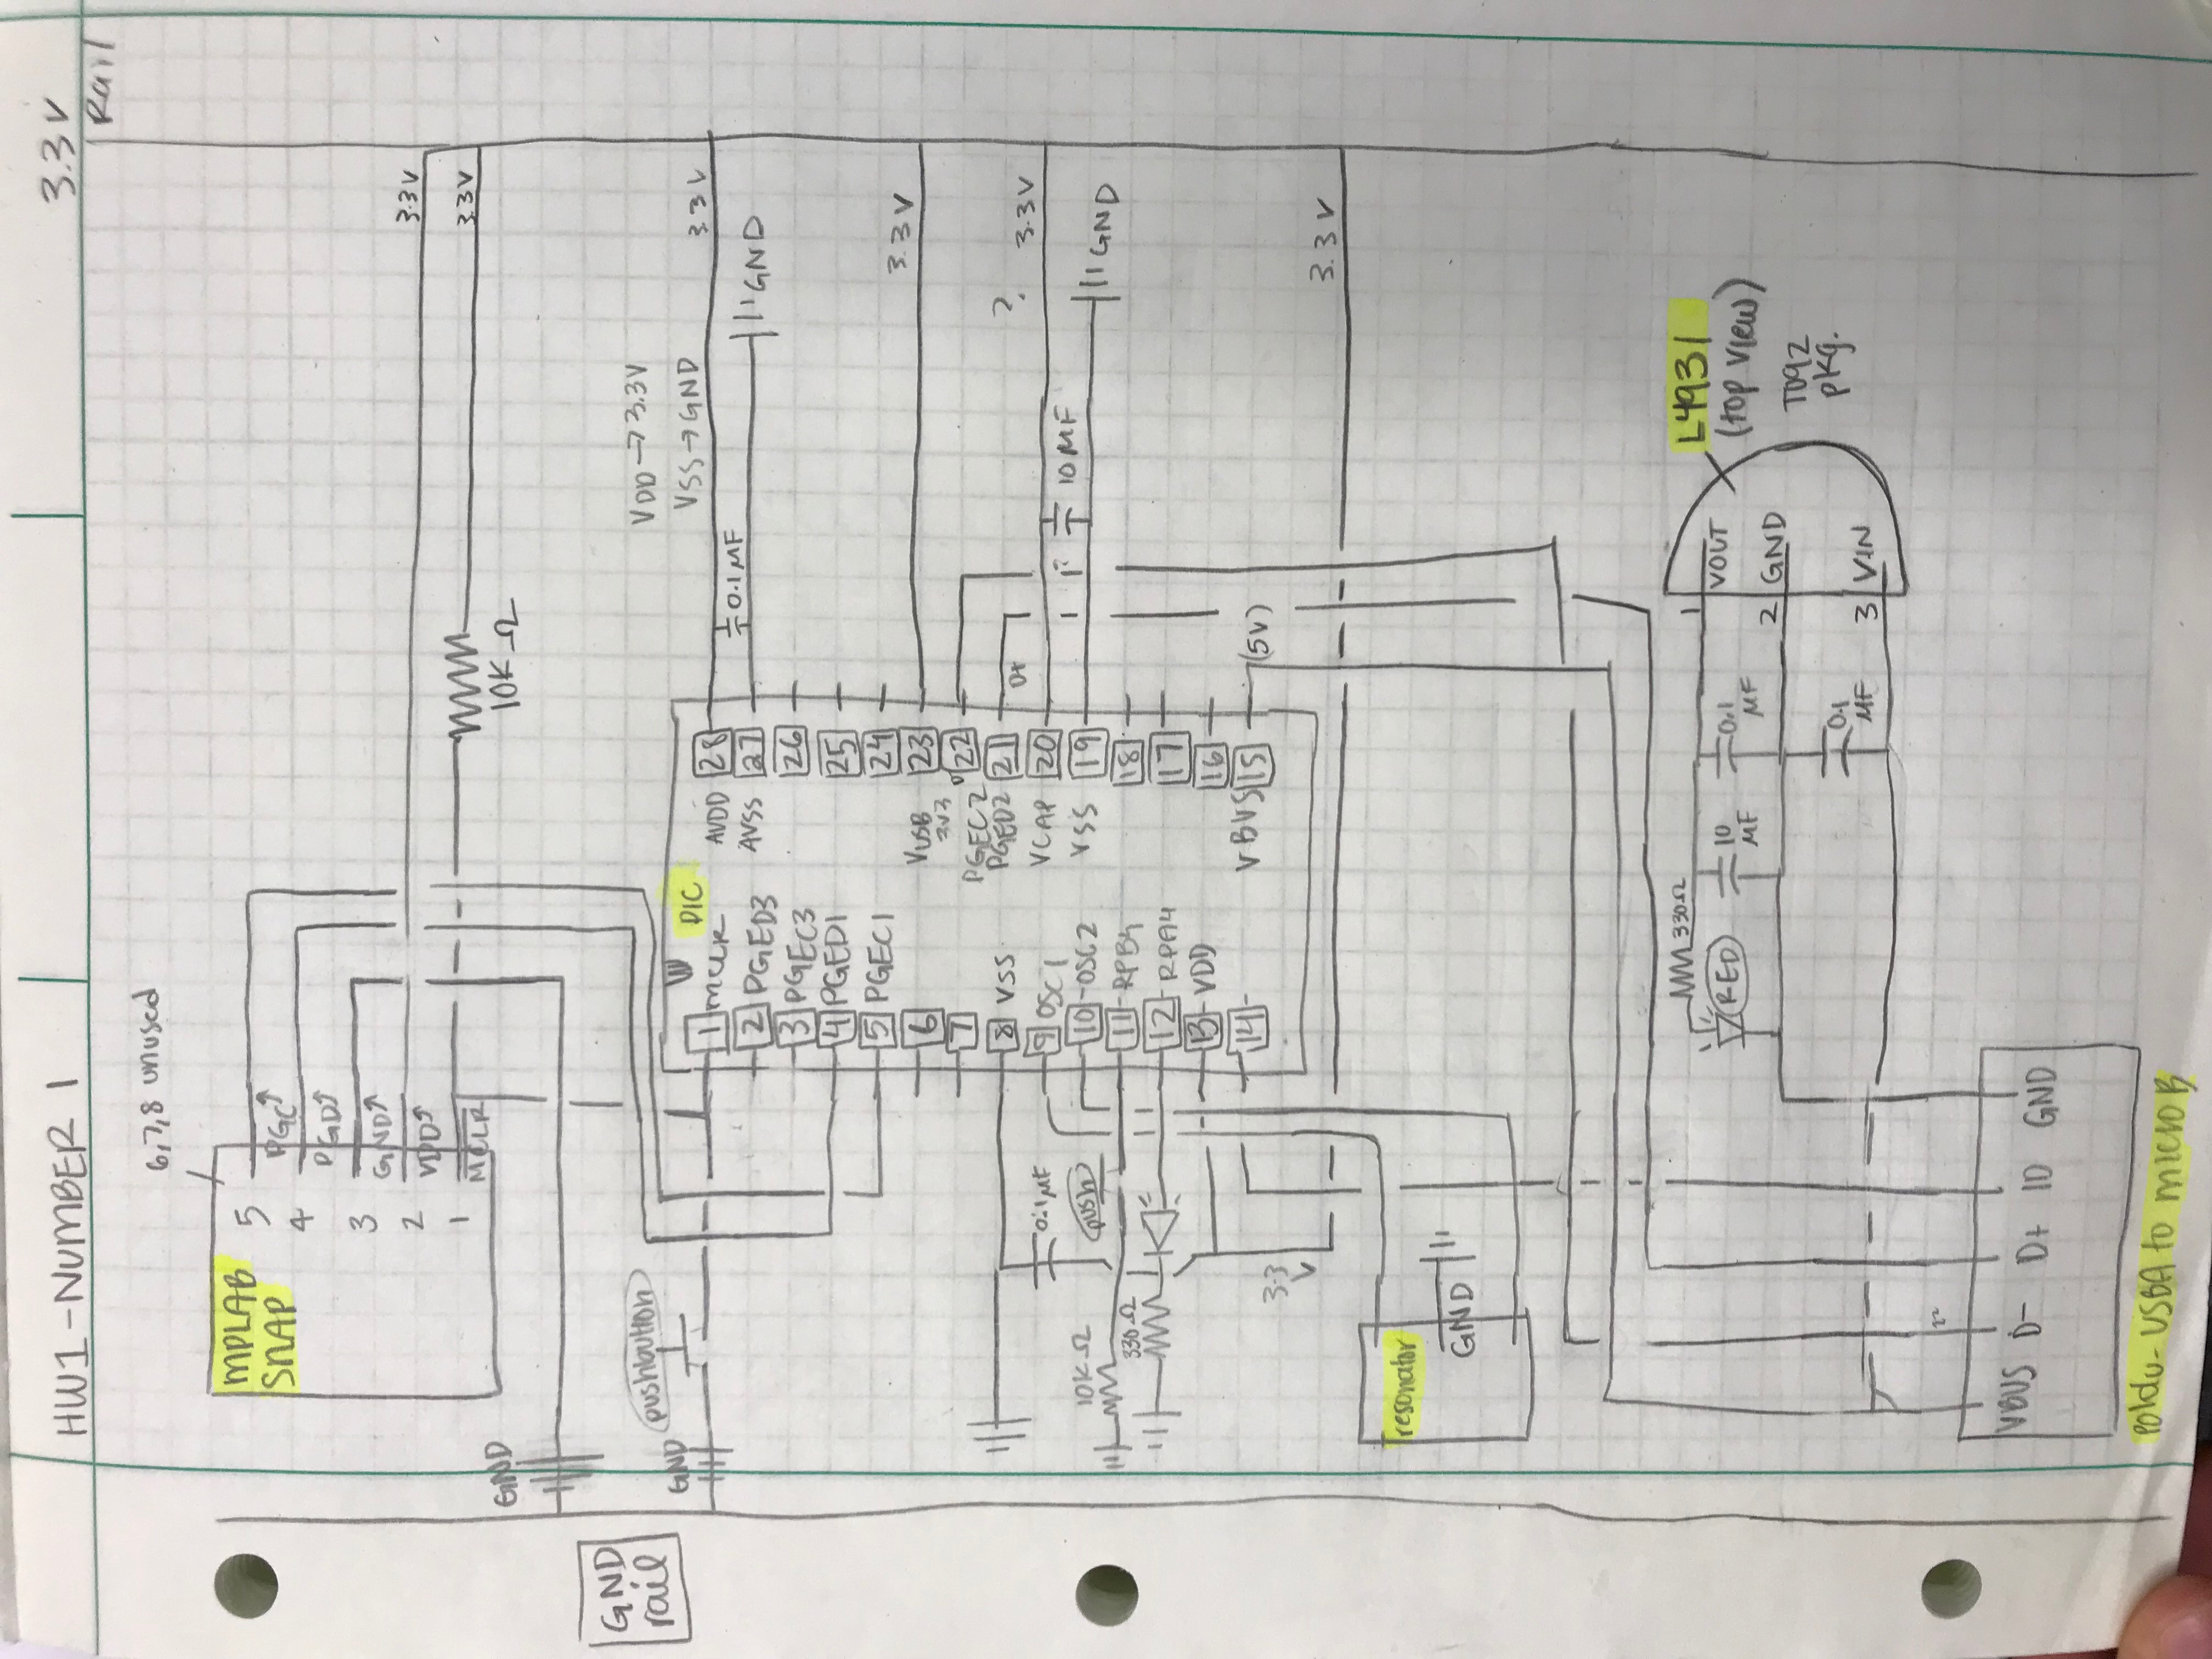 HW1-NUMBER 1
3.3V
Rail
6,7,8 unused
MPLAB
SNAP
5
PGC↑
4
PGD↑
3
GND↑
2
VDD↑
1
MCLR
3.3V
3.3V
10K Ω
GND
GND
rail
pushbutton
GND
VDD→3.3V
VSS→GND
PIC
1 MCLR
2 PGED3
3 PGEC3
4 PGED1
5 PGEC1
6
7
8 VSS
9 OSC1
10 OSC2
11 RPB4
12 RPA4
13 VDD
14
AVDD 28
3.3V
0.1MF
AVSS 27
GND
26
25
24
VUSB 23
3V3
3.3V
22
PGEC2
PGED2 21
D+
?
VCAP 20
3.3V
10MF
VSS 19
GND
18
17
16
VBUS 15
(5V)
0.1MF
10K Ω
push
330Ω
3.3
V
3.3V
resonator
GND
330Ω
RED
10
MF
0.1
MF
0.1
MF
1
VOUT
2 GND
3 VIN
L4931
(top view)
TO92
pkg.
VBUS D- D+ ID GND
Poldu- USBA to micro B